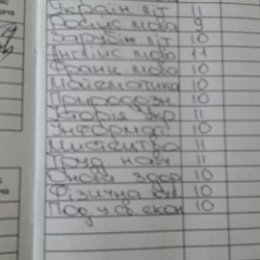 Україн літ 11
Російс мова 9
Зарубіж літ 10
Англійс мова 11
Франц мова 10
Математика 10
Природозн 10
Історія Укр 11
Інформат 10
Мистецтво 11
Труд навч 11
Основи здор 10
Фізична кул 10
Под у св екон 10